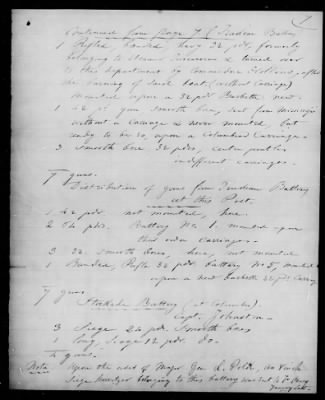 Continued from page 7 (Trudeau Battery
1 Rifled, banded, heavy 32 pdr, formerly
belonging to Steamer & turned over
to this department by Commander Stevens, after
the burning of said boat (without carriage)
Mounted upon a 32 pdr Barbette, new.
1 42 pdr gun smooth bore, sent from Mississippi
without a Carriage & never mounted, but
ready to be so, upon a Columbiad Carriage.
3 Smooth bore 32 pdrs, center pintles
indifferent carriages.
7 guns.
Distribution of guns from Trudeau Battery
at this Post.
1 42 pdr. not mounted, here.
2 64 pdrs. Battery No. 1. mounted upon
their own carriages.
3 32. smooth bores, here, not mounted
1 Banded, Rifle 32 pdr battery No 5, mounted
upon a new barbette 32 pdr. Carriage
7 guns
Stockade Battery (at Columbus).
Capt. Johnston.
3 Siege 24 pdr. Smooth bores
1 long, Siege 12 pdr. do.
4 guns.
Note Upon the order of Major Gen L. Polk, an 8 inch
Siege howitzer belonging to this battery was sent to Ft Henry